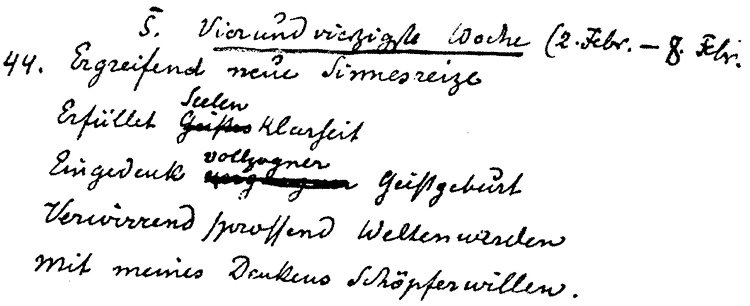 S̄. Vierundvierzigste Woche (2. Febr. – 8. Febr.
44. Ergreifend neue Sinnesreize
Seelen
Erfüllet Geistes Klarheit
vollzogner
Eingedenk Geistgeburt
Verwirrend sprossend Weltenwerden
Mit meines Denkens Schöpferwillen.